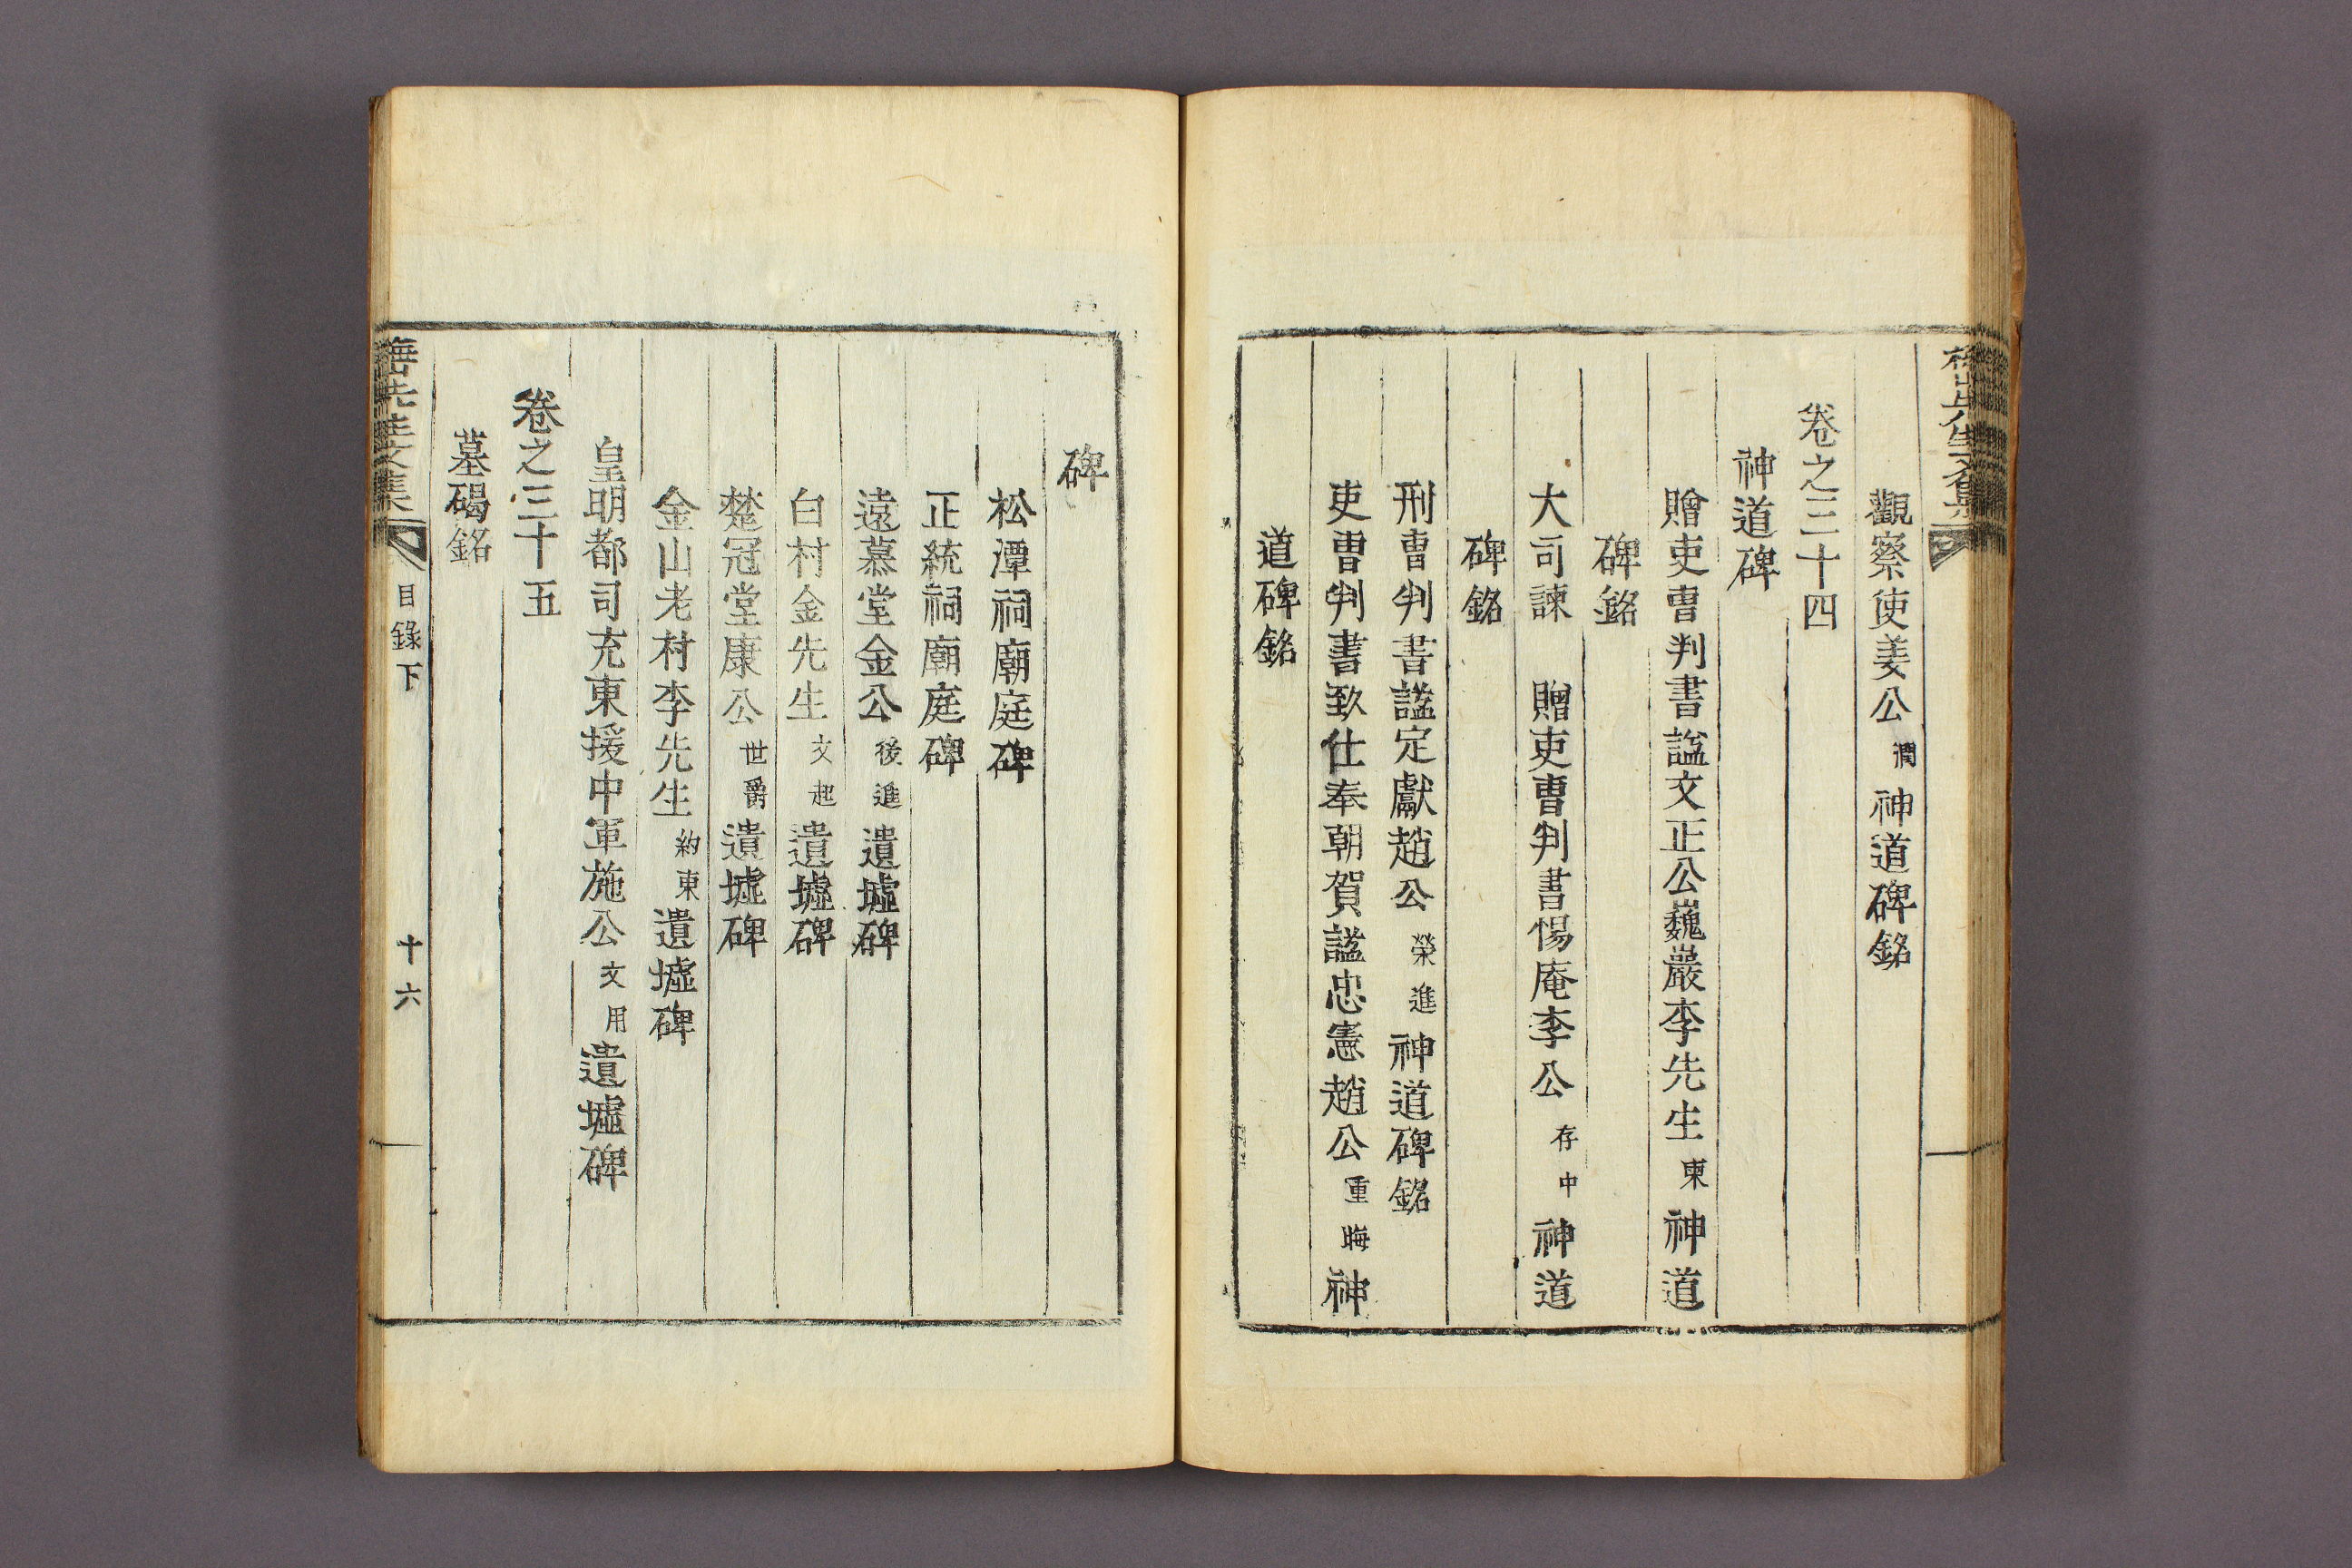 觀察使姜公 潤 神道碑銘
卷之三十四
神道碑
贈吏曺判書諡文正公巍巖李先生 柬 神道
碑銘
大司諫 贈吏曺判書惕庵李公 存中 神道
碑銘
刑曺判書諡定獻趙公 榮進 神道碑銘
吏曺判書致仕奉朝賀諡忠憲趙公 重晦 神
道碑銘
碑
松潭祠廟庭碑
正統祠廟庭碑
遠慕堂金公 後進 遺墟碑
白村金先生 文起 遺墟碑
楚冠堂康公 世爵 遺墟碑
金山老村李先生 約東 遺墟碑
皇明都司充東援中軍施公 文用 遺墟碑
卷之三十五
墓碣銘
先生文集 目錄下 十六